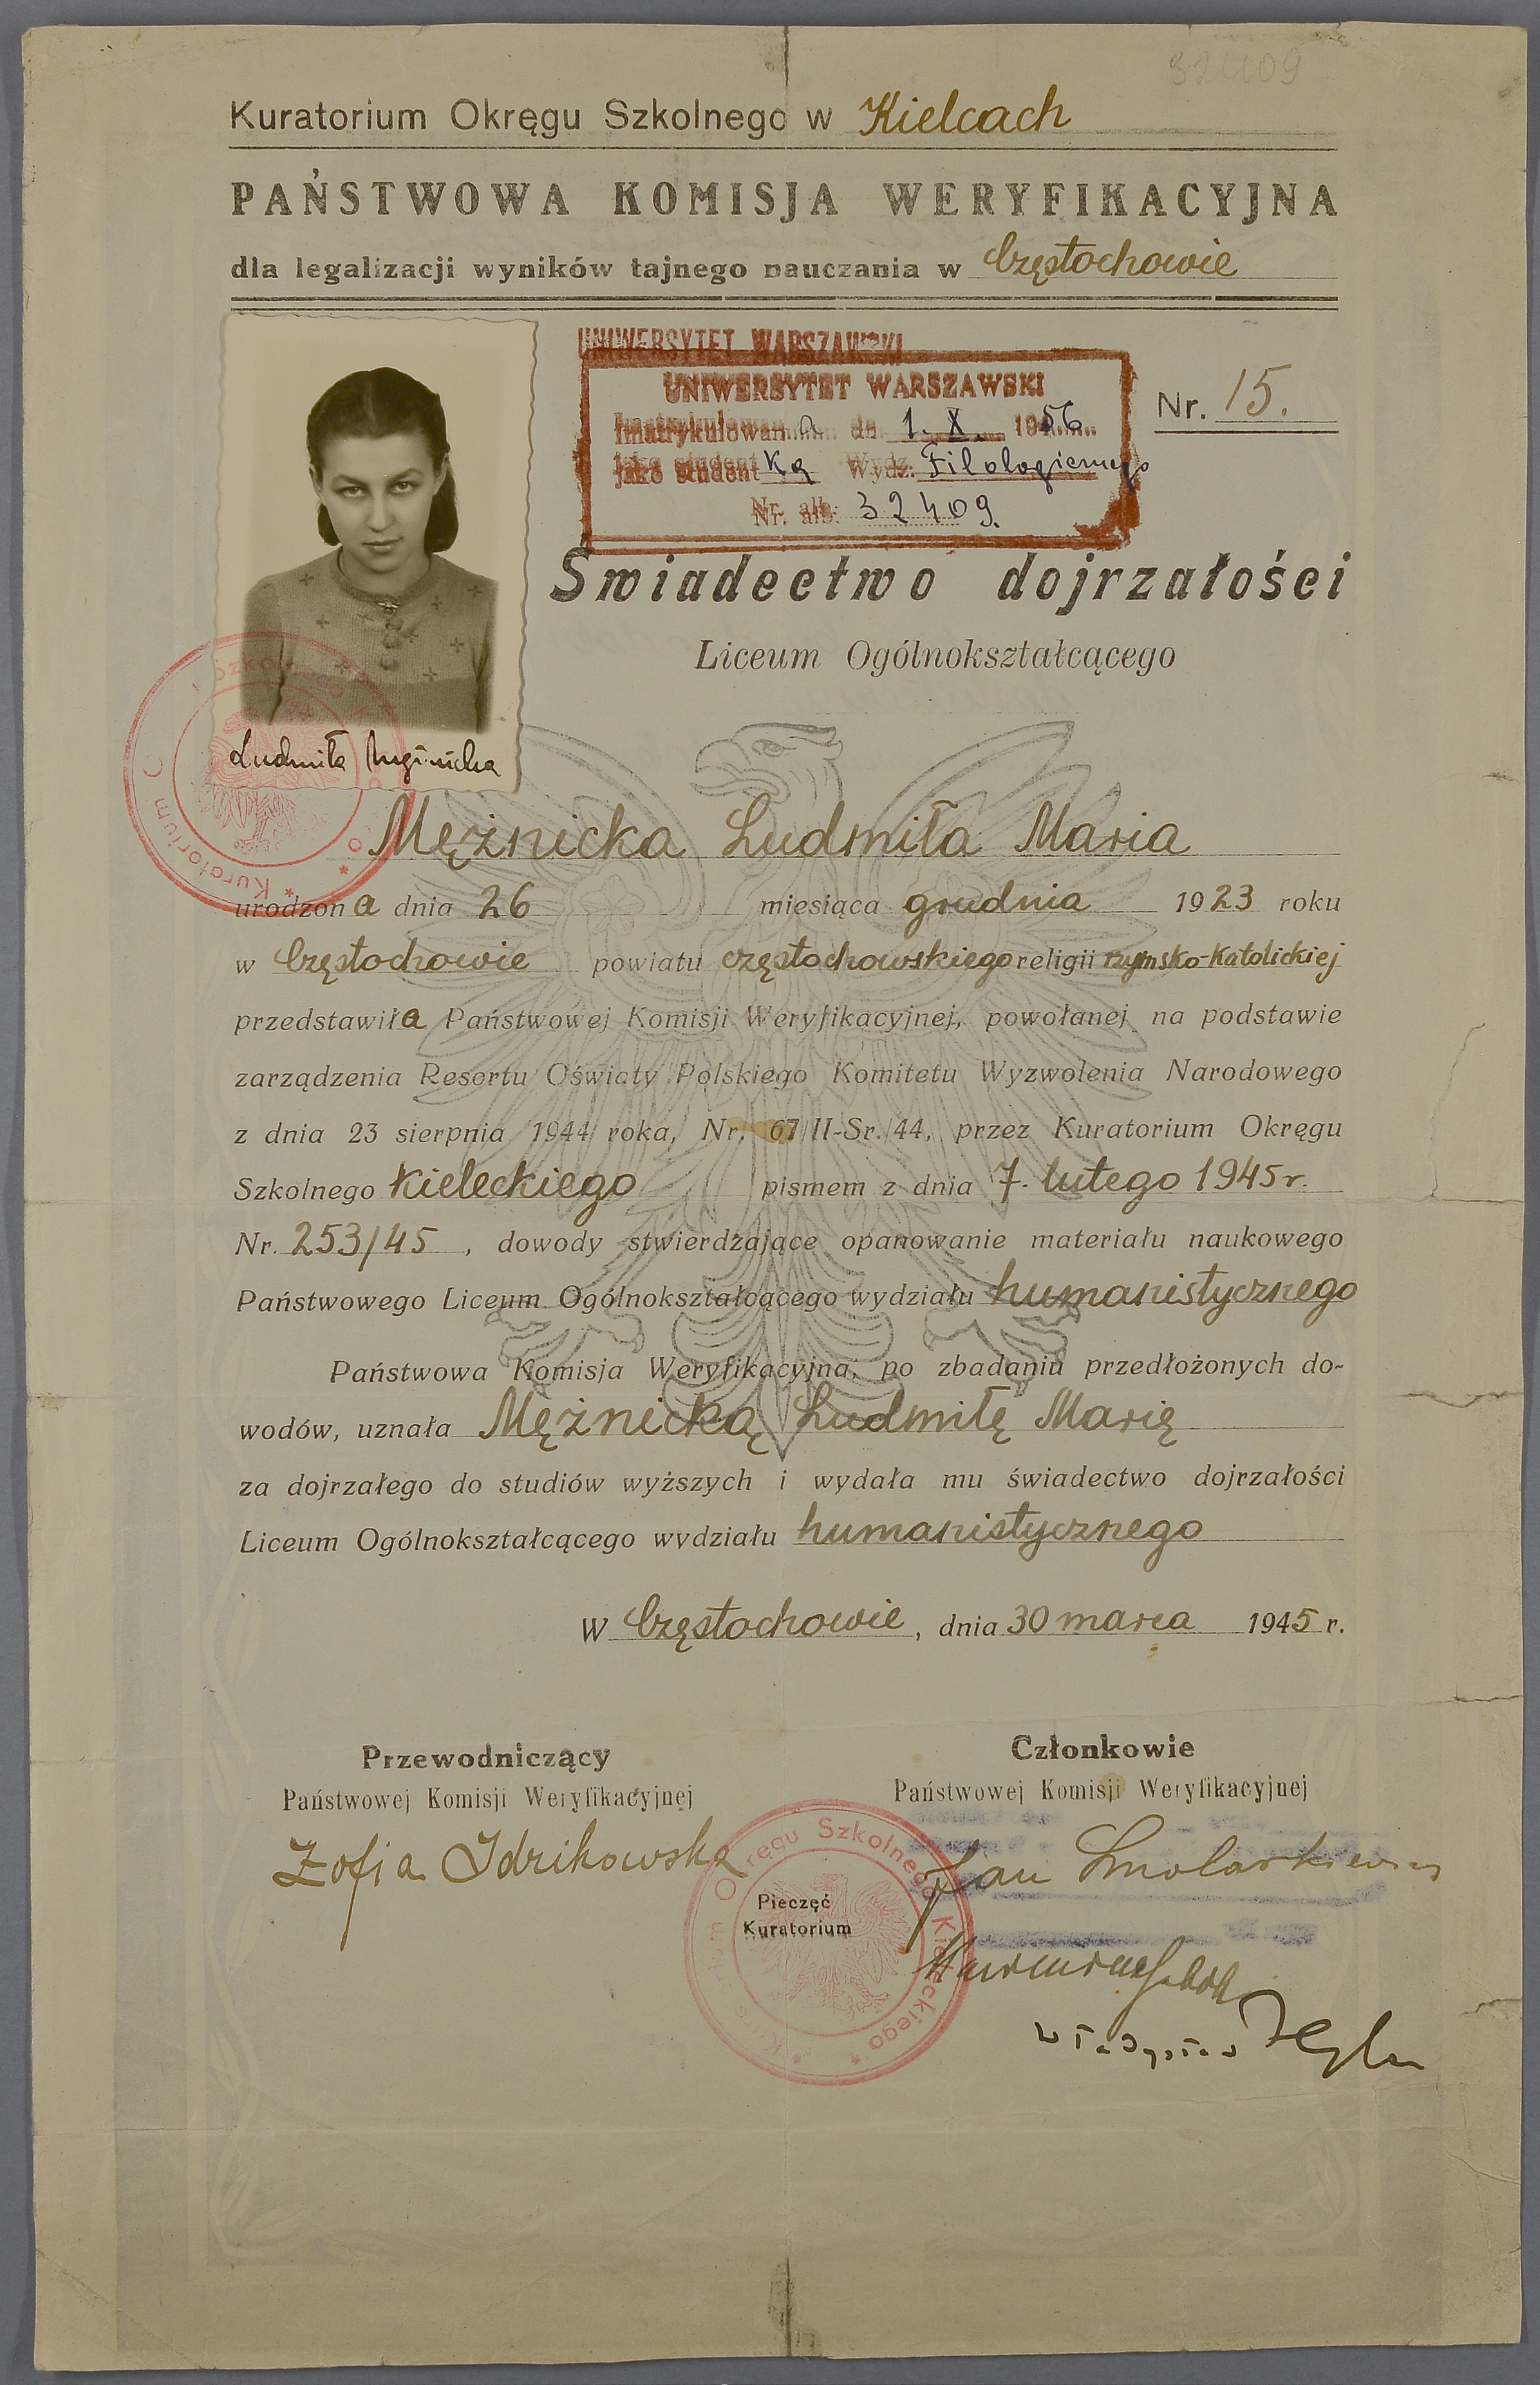 32409
Kuratorium Okręgu Szkolnego w Kielcach
PAŃSTWOWA KOMISJA WERYFIKACYJNA
dla legalizacji wyników tajnego nauczania w Częstochowie
UNIWERSYTET WARSZAWSKI
UNIWERSYTET WARSZAWSKI
Imatrykulowana dn. 1. X. 1956
jako studentka Wydz. Filologicznego
Nr. alb. 32409.
Nr. 15.
Świadectwo dojrzałości
Liceum Ogólnokształcącego
Ludmiła Mężnicka
Mężnicka Ludmiła Maria
urodzona dnia 26 miesiąca grudnia 1923 roku
w Częstochowie powiatu częstochowskiego religii rzymsko-katolickiej
przedstawiła Państwowej Komisji Weryfikacyjnej, powołanej na podstawie
zarządzenia Resortu Oświaty Polskiego Komitetu Wyzwolenia Narodowego
z dnia 23 sierpnia 1944 roka, Nr. 67/II-Sr./44, przez Kuratorium Okręgu
Szkolnego Kieleckiego pismem z dnia 7. lutego 1945 r.
Nr. 253/45, dowody stwierdzające opanowanie materiału naukowego
Państwowego Liceum Ogólnokształcącego wydziału humanistycznego
Państwowa Komisja Weryfikacyjna, po zbadaniu przedłożonych do-
wodów, uznała Mężnicką Ludmiłę Marię
za dojrzałego do studiów wyższych i wydała mu świadectwo dojrzałości
Liceum Ogólnokształcącego wydziału humanistycznego
W Częstochowie, dnia 30 marca 1945 r.
Przewodniczący
Państwowej Komisji Weryfikacyjnej
Zofja Idzikowska
Członkowie
Państwowej Komisji Weryfikacyjnej
Jan Smolarkiewicz
Władysław
Pieczęć
Kuratorium
Kuratorium Okręgu Szkolnego Kieleckiego